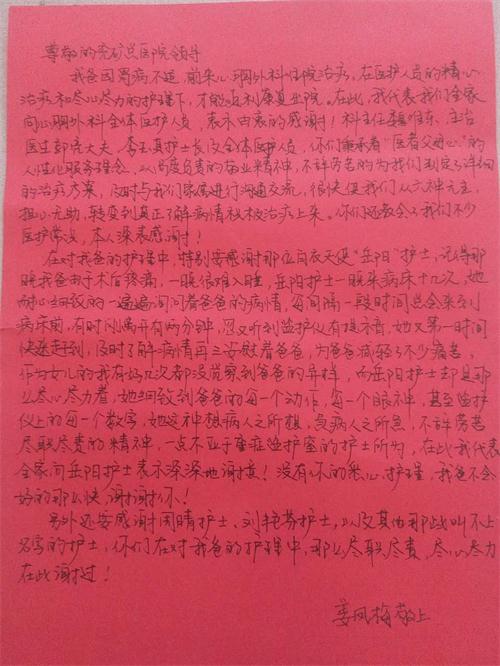 尊敬的兖矿总医院领导
我爸因胃病不适，前来心胸外科住院治疗，在医护人员的精心
治疗和尽心尽力的护理下，才能顺利康复出院。在此，我代表我们全家
向心胸外科全体医护人员，表示由衷的感谢！科主任 主治
医生郭亮大夫、李玉真护士长及全体医护人员，你们秉承着“医者父母心”的
人性化服务理念，以高度负责的敬业精神，不辞劳苦的为我们制定了详细
的治疗方案，及时与我们家属进行沟通交流，很快使我们从六神无主，
担心无助，转变到真正了解病情积极治疗上来。你们还教会了我们不少
医护常识，本人深表感谢！
在对我爸的护理中，特别要感谢那位白衣天使“岳阳”护士，记得那
晚我爸由于术后疼痛，一晚很难入睡，岳阳护士一晚来病床十几次，她
耐心细致的一遍遍询问着爸爸的病情，每间隔一段时间总会来到
病床前，有时刚离开有两分钟，忽又听到监护仪有提示音，她又第一时间
快速赶到，及时了解病情再三安慰着爸爸，为爸爸减轻了不少痛苦，
作为女儿的我有好几次都没觉察到爸爸的异样，而岳阳护士却是那
么尽心尽力着，她细致到爸爸的每一个动作，每一个眼神，甚至监护
仪上的每一个数字，她这种想病人之所想，急病人之所急，不辞劳苦
尽职尽责的精神，一点不亚于重症监护室的护士所为，在此我代表
全家向岳阳护士表示深深地谢意！没有你的悉心护理，我爸不会
好的那么快，谢谢你！
另外还要感谢周晴护士、刘艳芬护士，以及其他那些叫不上
名字的护士，你们在对我爸的护理中，那么尽职尽责，尽心尽力
在此谢过！
姜凤梅敬上